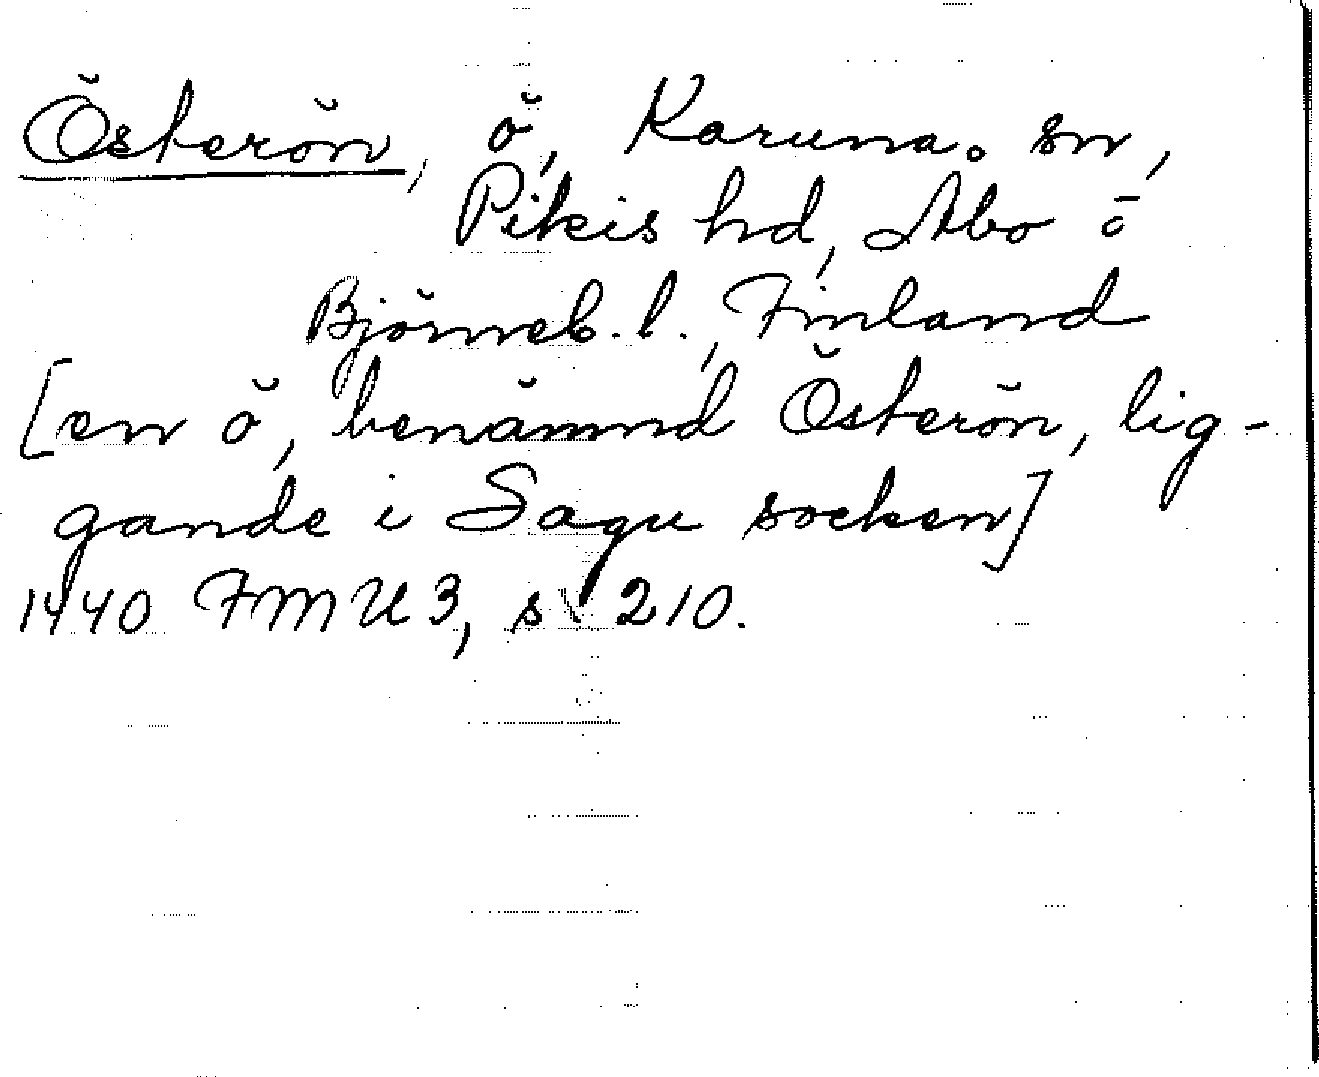 Österön, ö, Karuna. sn,
Pikis hd, Åbo o
Björneb. l., Finland
[en ö, benämnd Österön, lig-
gande i Sagu socken]
1440 FMU 3, s 210.